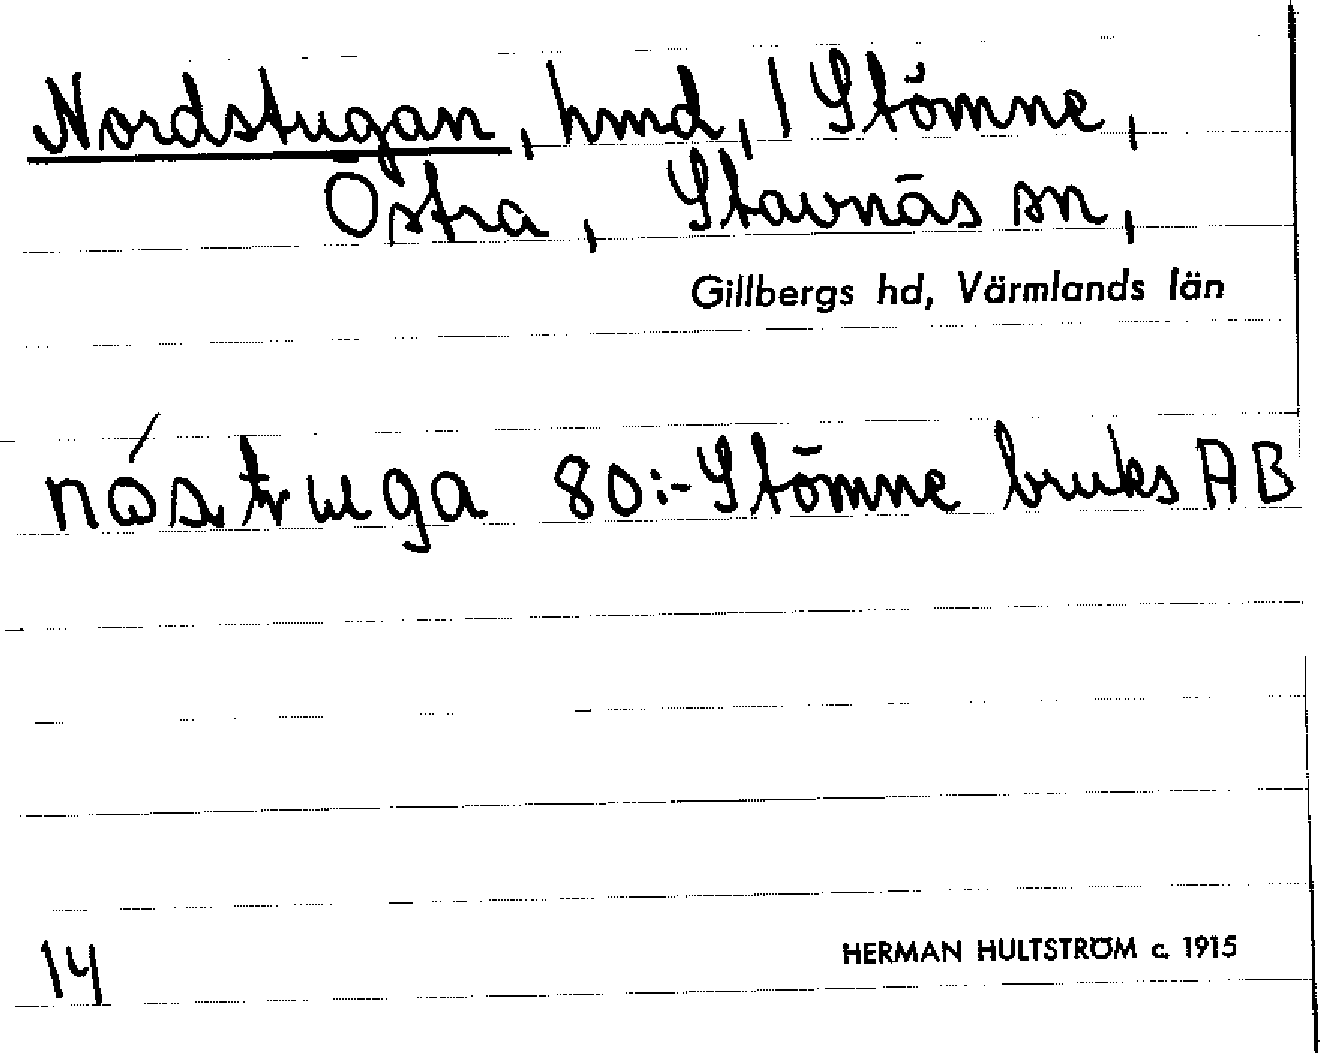 Nordstugan, hmd, 1 Stömne,
Östra, Stavnäs sn,
Gillbergs hd, Värmlands län
80:- Stömne bruks AB
14
HERMAN HULTSTRÖM c. 1915